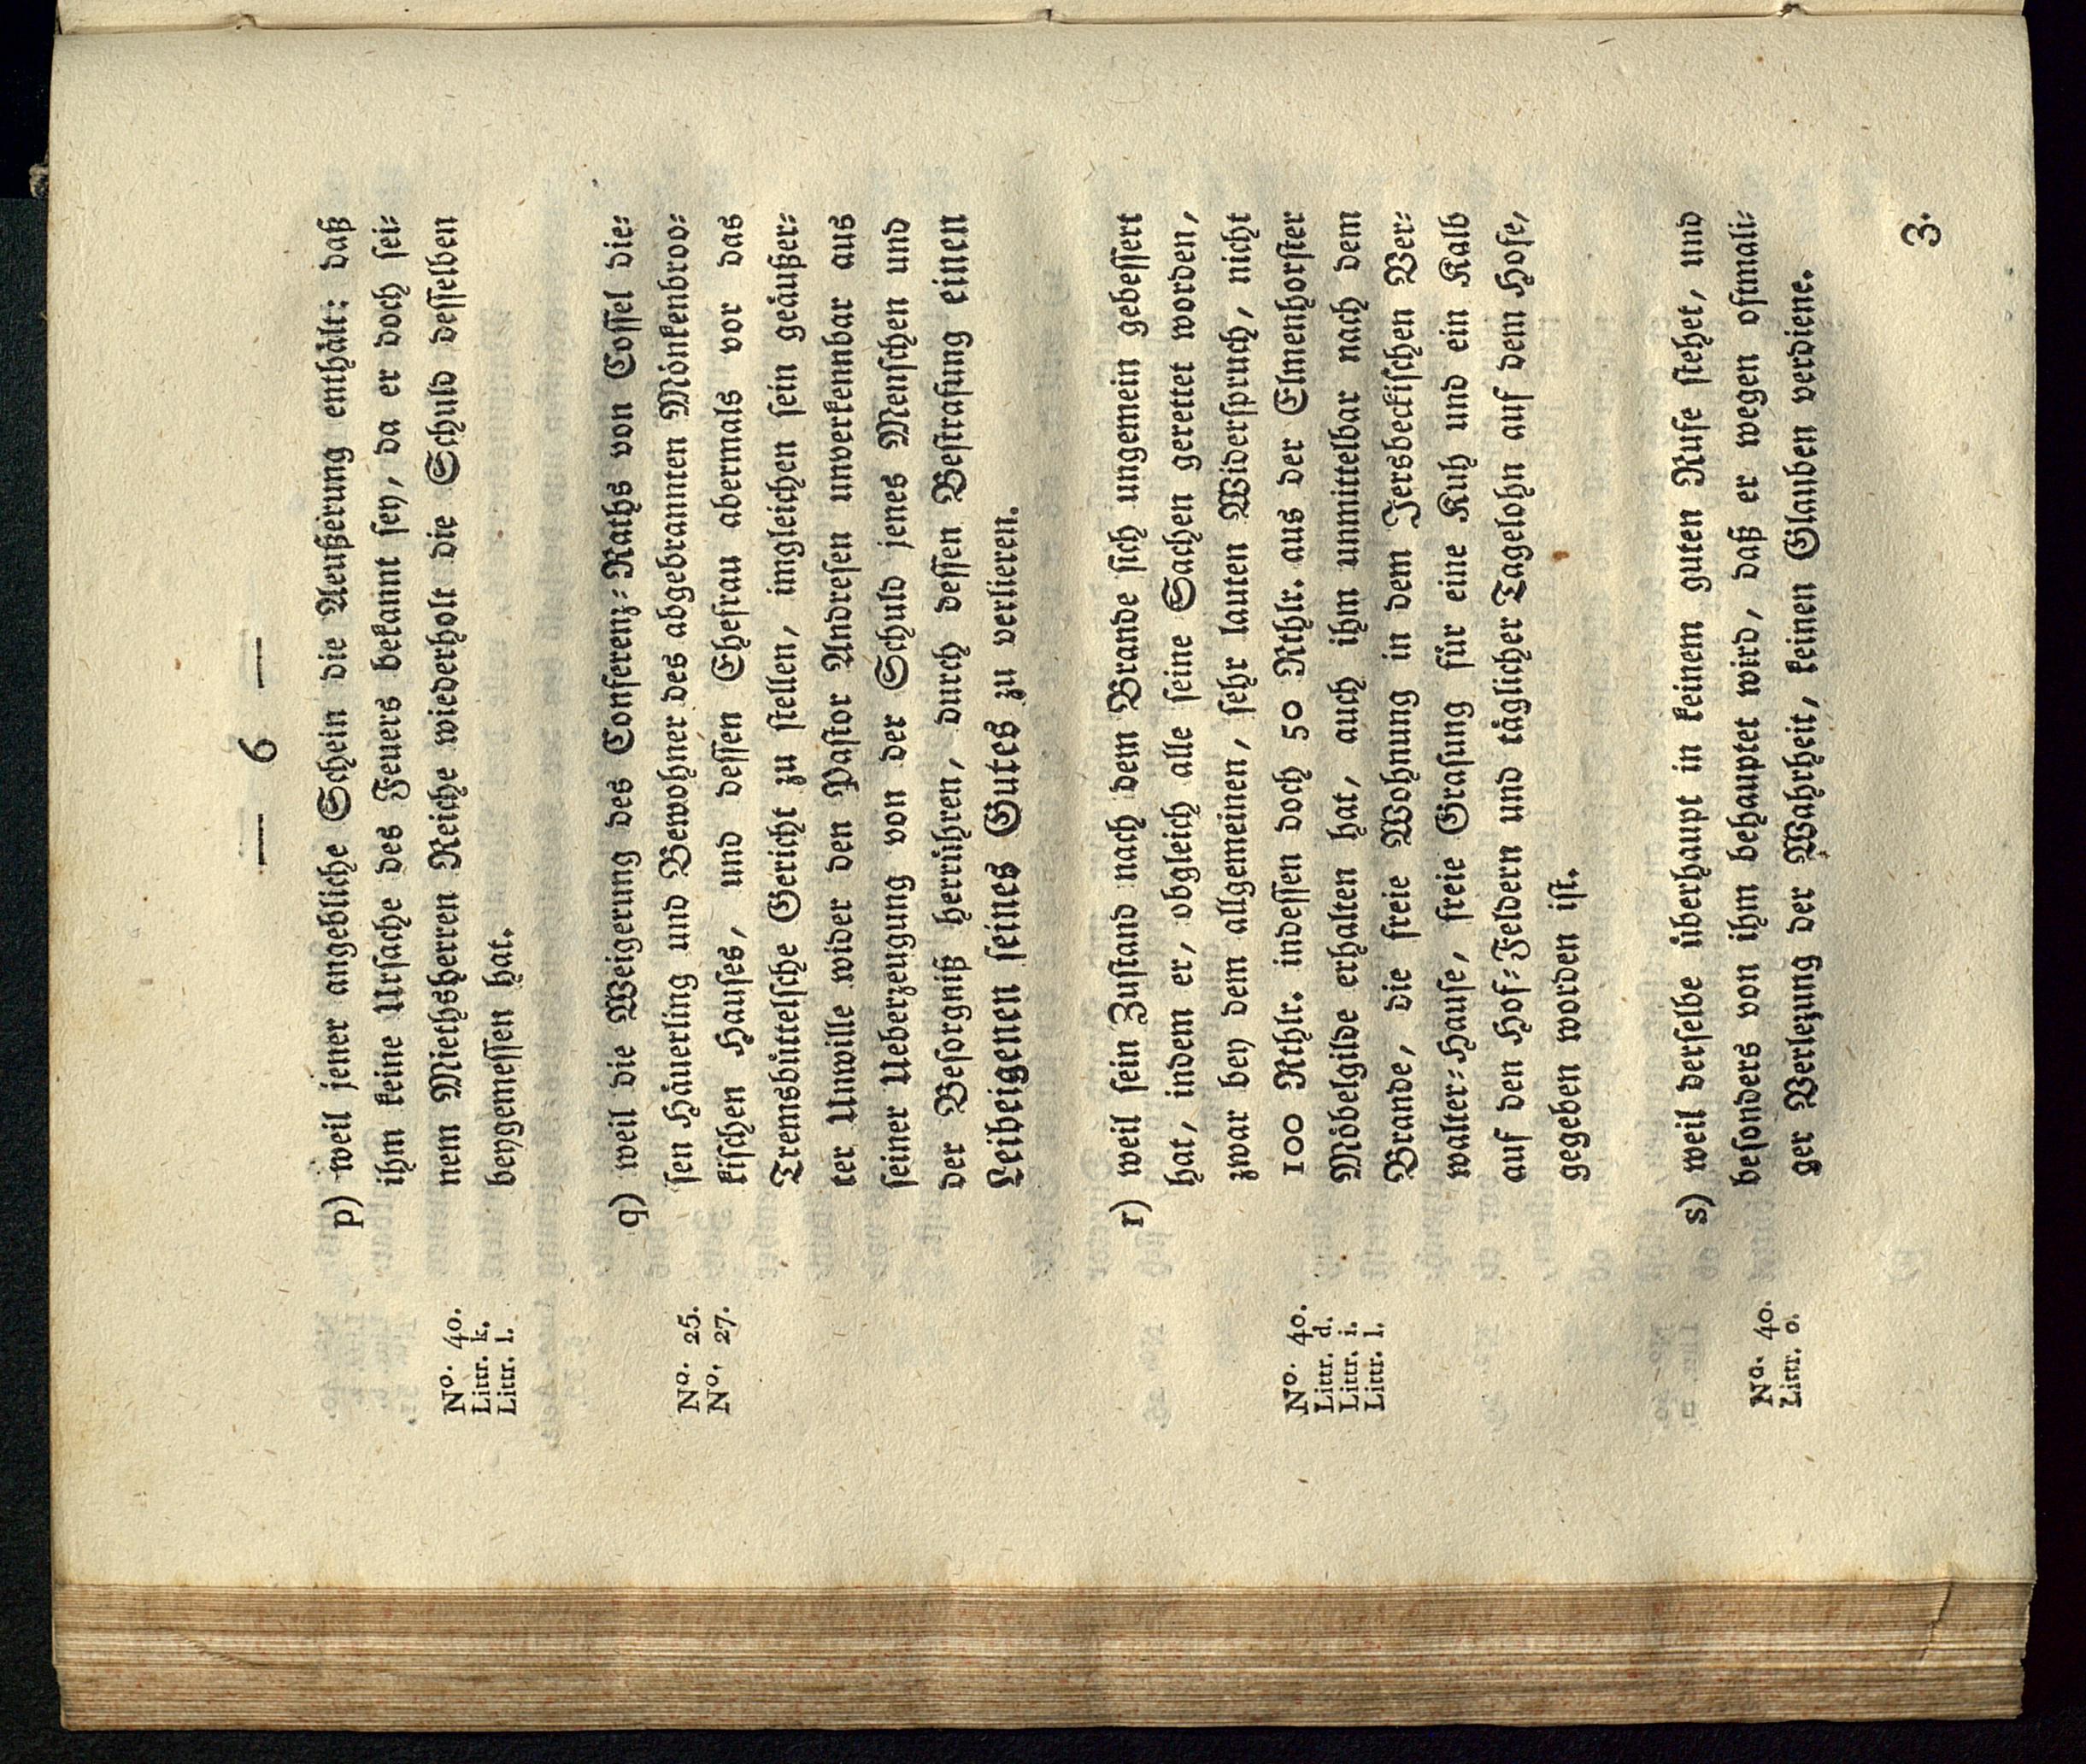 — 6 —
p) weil jener angebliche Schein die Aeußerung enthält: daß
ihm keine Ursache des Feuers bekannt sey, da er doch sei⸗
No. 40.
nem Miethsherren Reiche wiederholt die Schuld desselben
Littr. k.
Littr. l.
beygemessen hat.
q) weil die Weigerung des Conferenz⸗Raths von Cossel die⸗
No. 25.
sen Häuerling und Bewohner des abgebrannten Mönkenbroo⸗
No. 27.
kischen Hauses, und dessen Ehefrau abermals vor das
Tremsbüttelsche Gericht zu stellen, imgleichen sein geäußer⸗
ter Unwille wider den Pastor Andresen unverkennbar aus
seiner Ueberzeugung von der Schuld jenes Menschen und
der Besorgniß herrühren, durch dessen Bestrafung einen
Leibeigenen seines Gutes zu verlieren.
r) weil sein Zustand nach dem Brande sich ungemein gebessert
hat, indem er, obgleich alle seine Sachen gerettet worden,
zwar bey dem allgemeinen, sehr lauten Widerspruch, nicht
No. 40.
100 Rthlr. indessen doch 50 Rthlr. aus der Elmenhorster
Littr. d.
Littr. i.
Möbelgilde erhalten hat, auch ihm unmittelbar nach dem
Littr. l.
Brande, die freie Wohnung in dem Jersbeckischen Ver⸗
walter⸗Hause, freie Grasung für eine Kuh und ein Kalb
auf den Hof⸗Feldern und täglicher Tagelohn auf dem Hofe,
gegeben worden ist.
s) weil derselbe überhaupt in keinem guten Rufe stehet, und
No. 40.
besonders von ihm behauptet wird, daß er wegen oftmali⸗
Littr. o.
ger Verlezung der Wahrheit, keinen Glauben verdiene.
3.